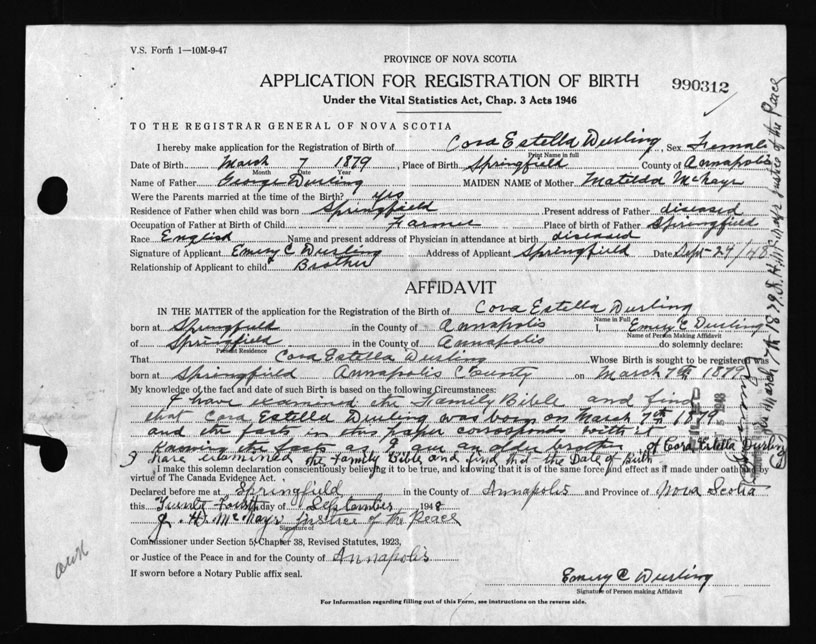 V.S. Form 1—10M-9-47
PROVINCE OF NOVA SCOTIA
APPLICATION FOR REGISTRATION OF BIRTH
990312
Under the Vital Statistics Act, Chap. 3 Acts 1946
TO THE REGISTRAR GENERAL OF NOVA SCOTIA
I hereby make application for the Registration of Birth of Cora Estella Durling, Sex Female
Print Name in full
Date of Birth March 7 1879, Place of Birth Springfield County of Annapolis
Month Date Year
Name of Father George Durling MAIDEN NAME of Mother Matilda McNayr
Were the Parents married at the time of the Birth? yes
Residence of Father when child was born Springfield Present address of Father diseased
Occupation of Father at Birth of Child Farmer Place of birth of Father Springfield
Race English Name and present address of Physician in attendance at birth diseased
Signature of Applicant Emery C Durling Address of Applicant Springfield Date Sept 24/48
Relationship of Applicant to child Brother
AFFIDAVIT
IN THE MATTER of the application for the Registration of the Birth of Cora Estella Durling
Name in Full
born at Springfield in the County of Annapolis I, Emery C Durling
Name of Person Making Affidavit
of Springfield in the County of Annapolis do solemnly declare:
Present Residence
That Cora Estella Durling Whose Birth is sought to be registered was
born at Springfield Annapolis County on March 7th 1879
My knowledge of the fact and date of such Birth is based on the following Circumstances:
I have examined the Family Bible and find
that Cora Estella Durling was born on March 7th 1879
and the facts in this paper correspond with it
Knowing the facts as I am an older brother of Cora Estella Durling
I have examined the Family Bible and find that the Date of Birth
I make this solemn declaration conscientiously believing it to be true, and knowing that it is of the same force and effect as if made under oath and by
virtue of The Canada Evidence Act.
Declared before me at Springfield in the County of Annapolis and Province of Nova Scotia
this Twenty Fourth day of September 1948
J. H. McNayr Justice of the Peace
Signature of
Commissioner under Section 5, Chapter 38, Revised Statutes, 1923,
or Justice of the Peace in and for the County of Annapolis
If sworn before a Notary Public affix seal.
Emery C Durling
Signature of Person making Affidavit
For Information regarding filling out of this Form, see instructions on the reverse side.
is March 7th 1879 J. H. McNayr Justice of the Peace